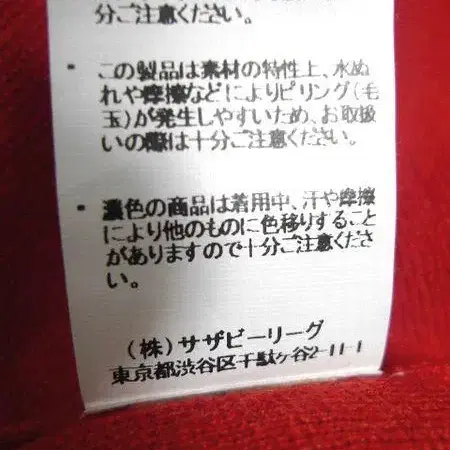 分ご注意ください。
・この製品は素材の特性上、水ぬ
れや摩擦などによりピリング(毛
玉)が発生しやすいため、お取扱
いの際は十分ご注意ください。
・濃色の商品は着用中、汗や摩擦
により他のものに色移りすること
がありますので十分ご注意くださ
い。
(株)サザビーリーグ
東京都渋谷区千駄ヶ谷2-11-1